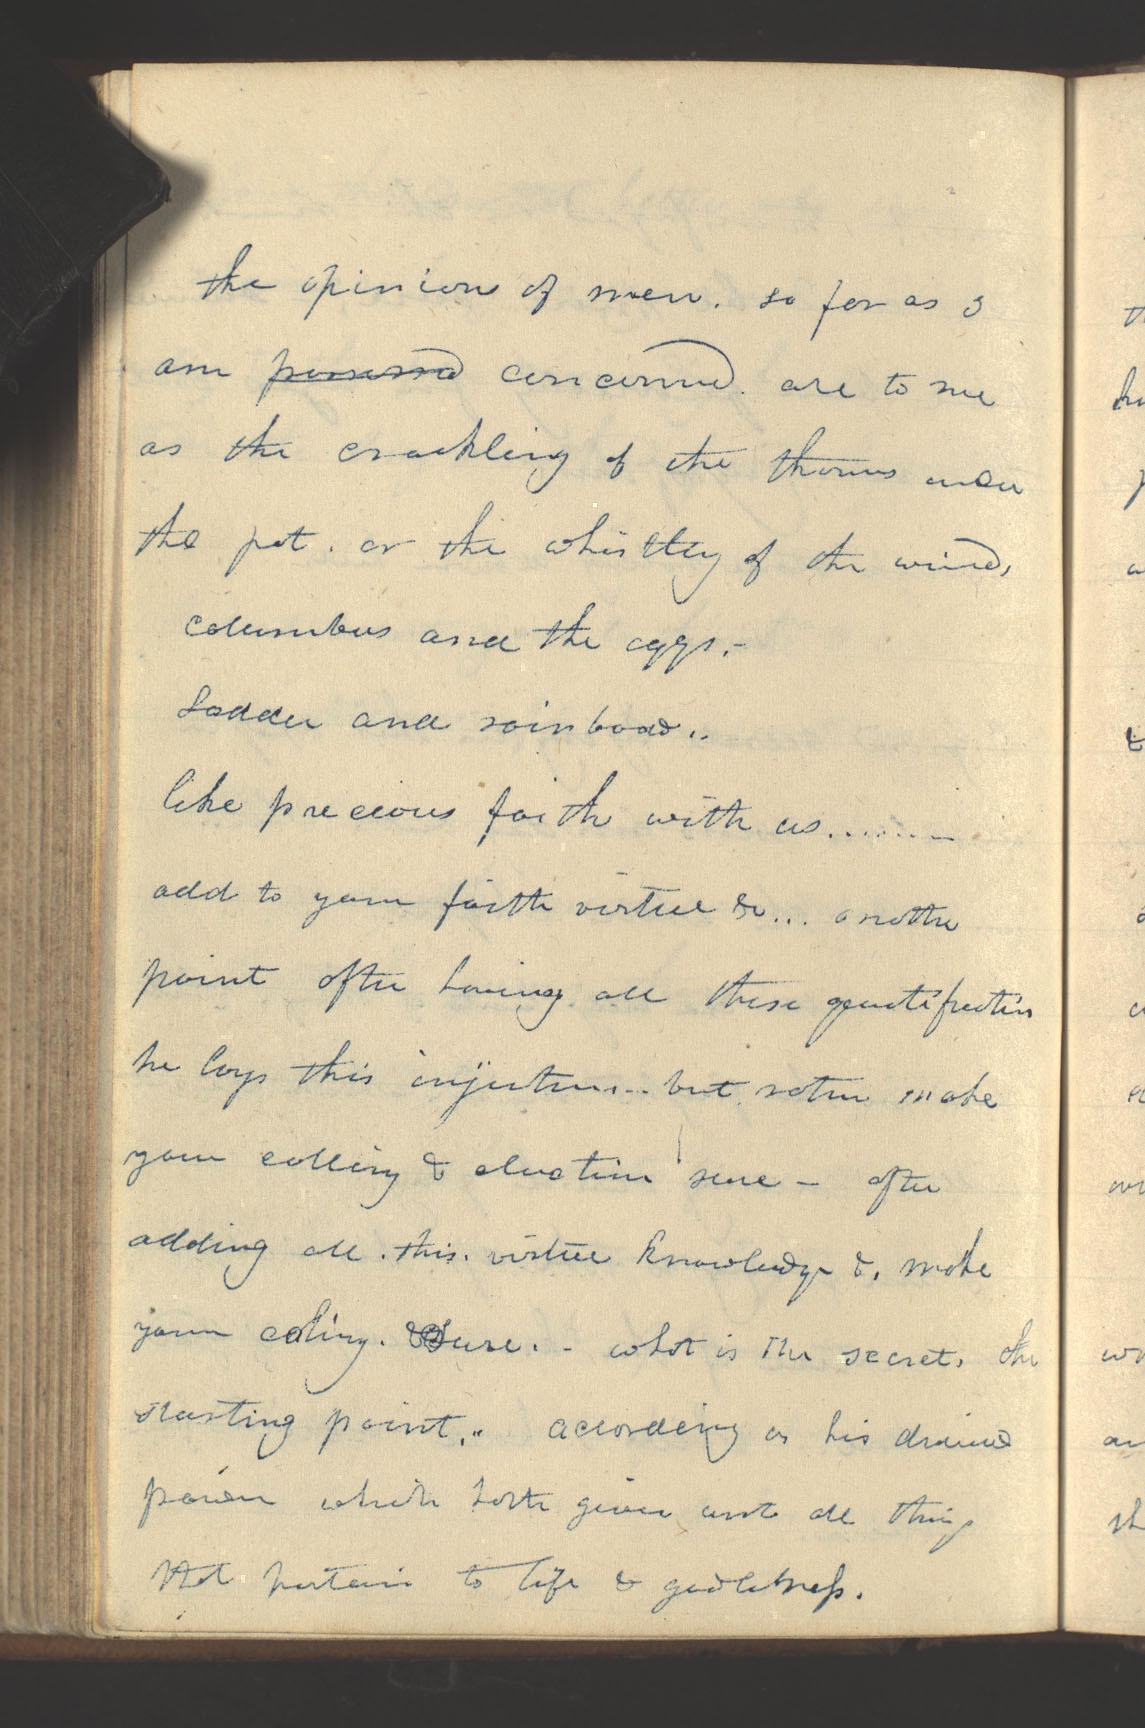 the opinions of men. so far as I
am possessed concerned. are to me
as the crackling of the thorns under
the pot. or the whistling of the wind,
columbus and the eggs.-
Ladder and rainboad..
like precious faith with us........-
add to your faith virtue &c... another
point after having all these qualification
he lays this injuction... but rather make
your calling & election sure - after
adding all. this. virtue knowledge &. make
your caling. & sure. - what is the secret, the
starting point,.. according as his divine
power which hath given unto all things
that pertain to life & godliness.
th
hi
p
w
&
wi
sh